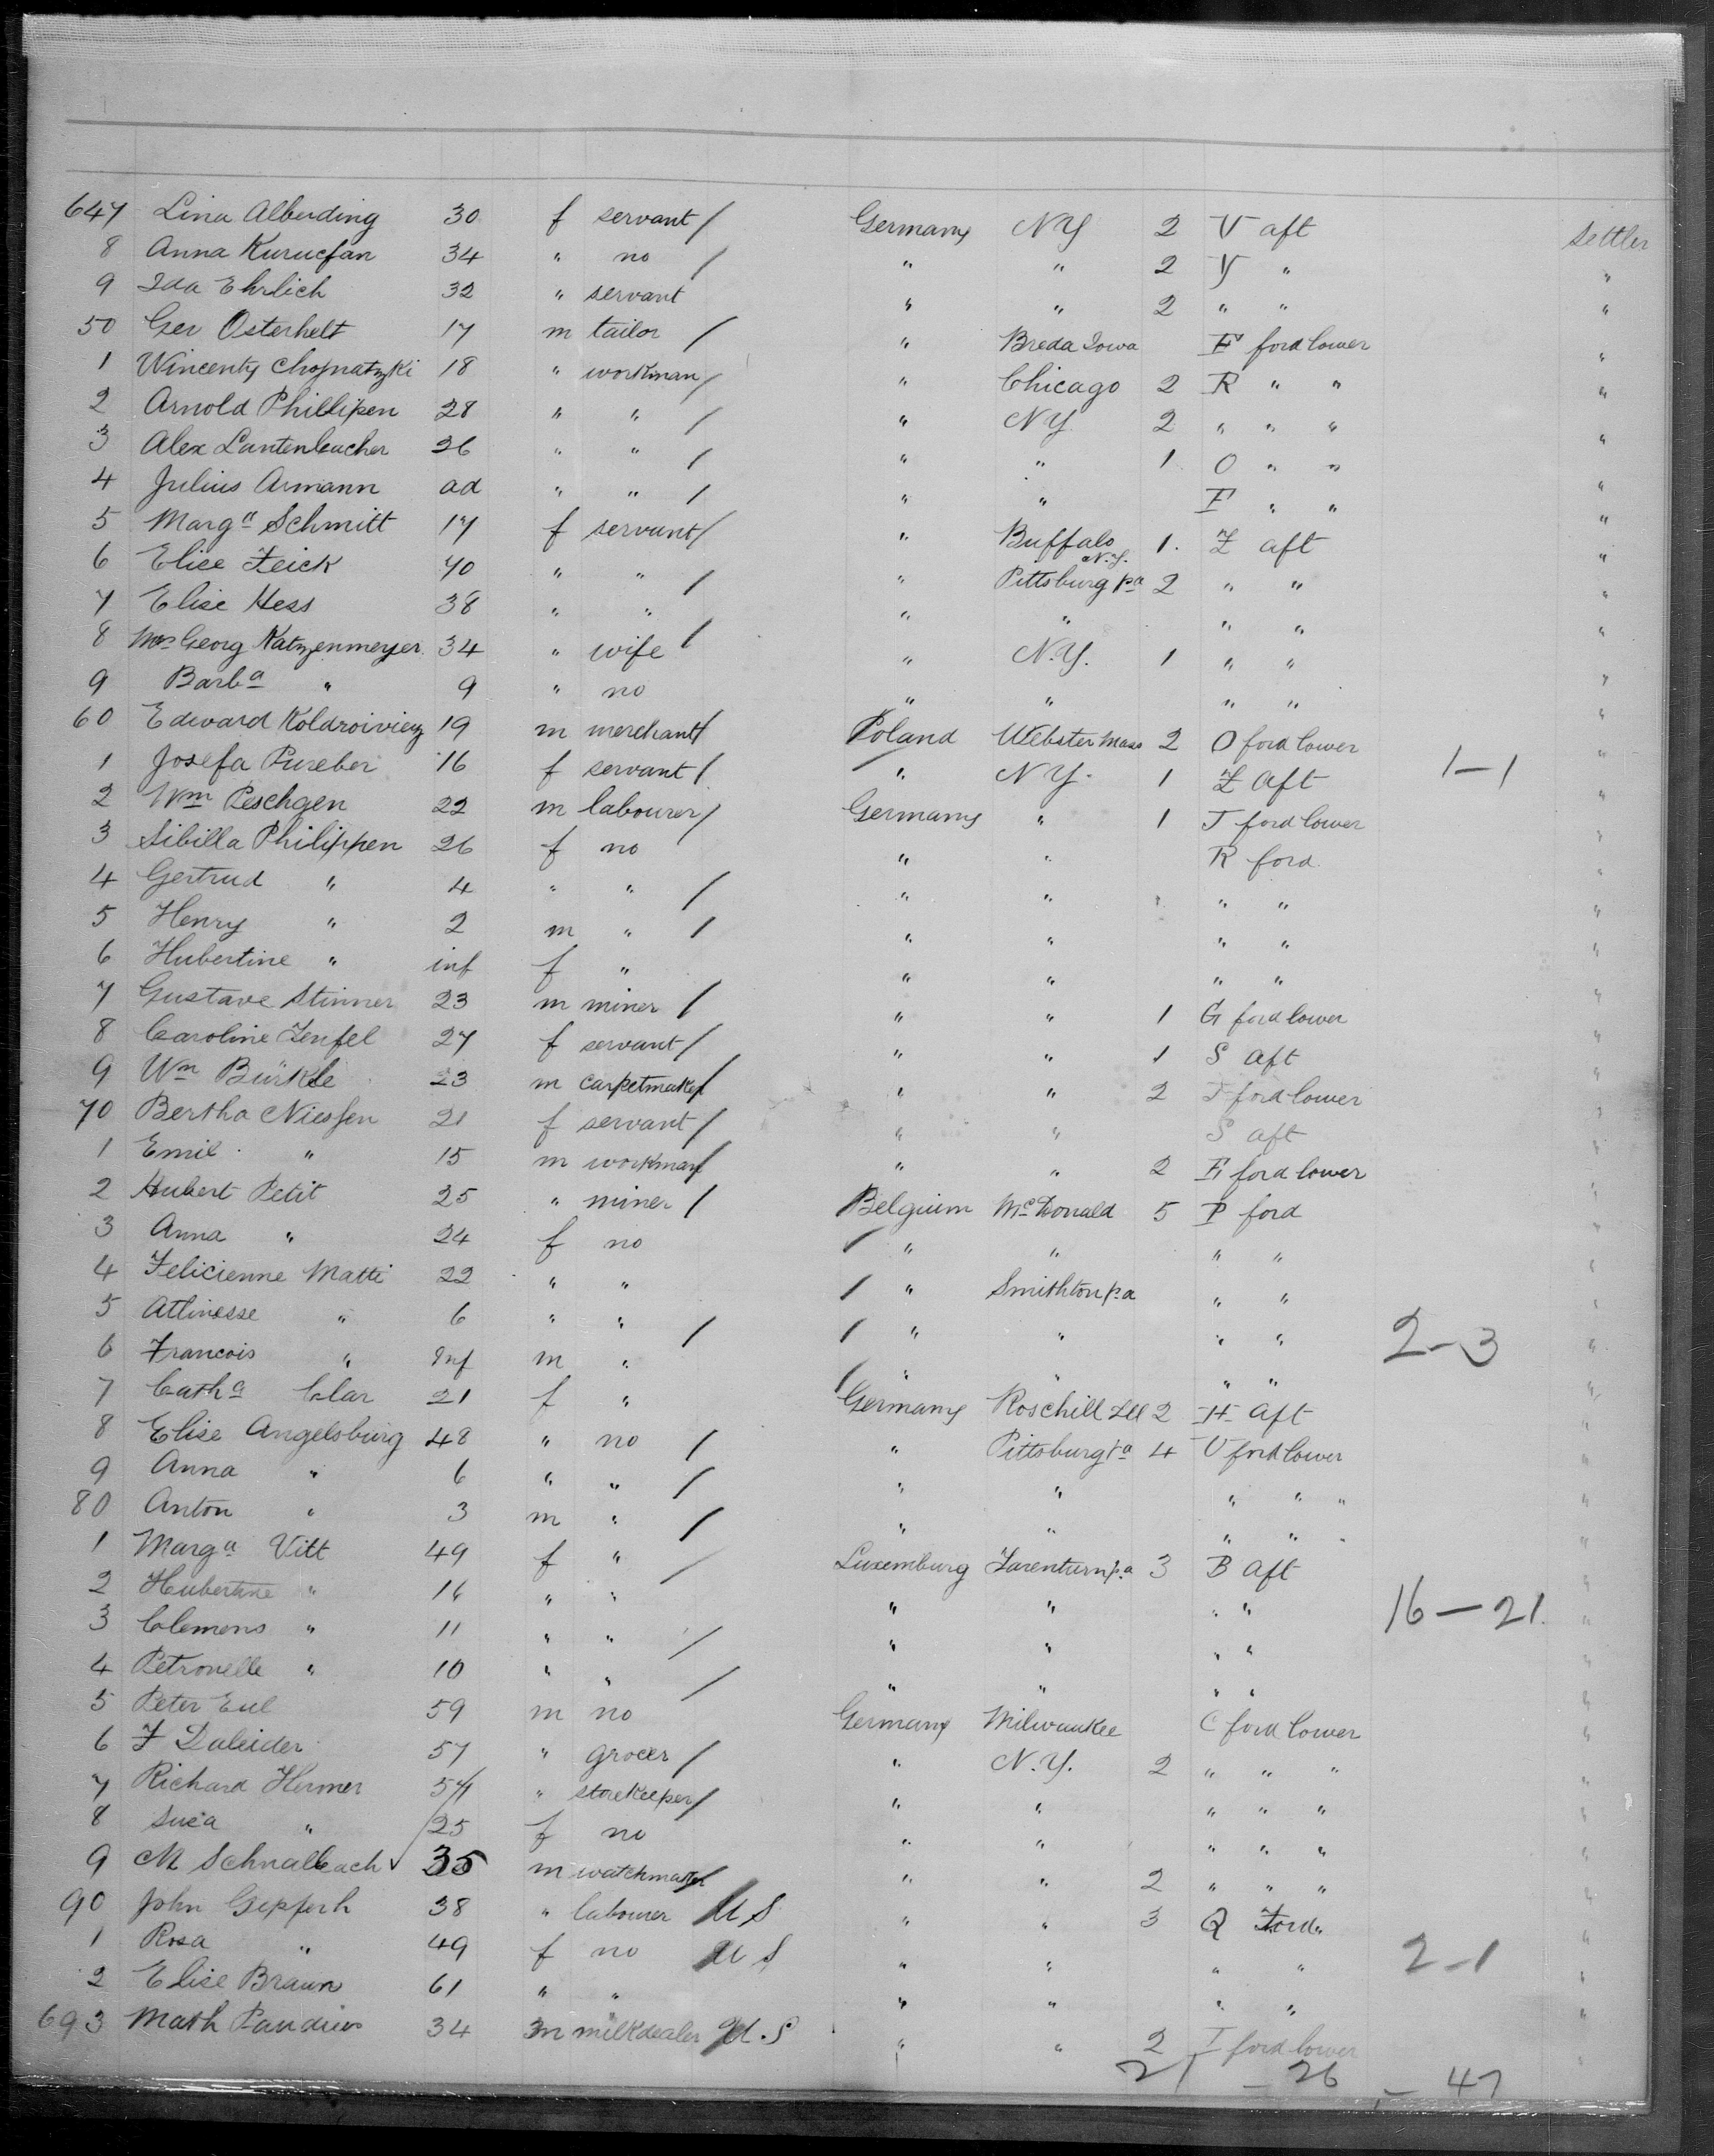 647 Lina Alberding 30 f servant / Germany NY 2 V aft settler
8 Anna Kurucfan 34 " no / " " 2 V " "
9 Ida Ehrlich 32 " servant " " 2 " " "
50 Ger Osterhelt 17 m tailor / " Breda Iowa F ford lower "
1 Wincenty Chojnatzki 18 " workman / " Chicago 2 R " " "
2 Arnold Phillipen 28 " " / " NY. 2 " " " "
3 Alex Lautenbacher 26 " " / " " 1 O " " "
4 Julius Armann ad " " / " " F " " "
5 Marga Schmitt 17 f servant / " Buffalo N.Y. 1. Z aft "
6 Elise Zeick 40 " " / " Pittsburg Pa 2 " " "
7 Elise Hess 38 " " / " " " " "
8 Mrs Georg Katzenmeyer 34 " wife " N.Y. 1 " " "
9 Barba " 9 " no " " " " "
60 Edward Koldroiviez 19 m merchant / Poland Webster Mass 2 O ford lower "
1 Josefa Pureber 16 f servant / " NY. 1 Z Aft 1-1 "
2 Wm Peschgen 22 m labourer / Germany " 1 J ford lower "
3 Sibilla Philippen 26 f no " " R ford "
4 Gertrud " 4 " " / " " " " "
5 Henry " 2 m " / " " " " "
6 Hubertine " inf f " " " " " "
7 Gustave Stinner 23 m miner / " " 1 G ford lower "
8 Caroline Zenfel 27 f servant / " " 1 S aft "
9 Wm Bürkle 23 m carpetmaker / " " 2 J ford lower "
70 Bertha Niessen 21 f servant / " " S aft "
1 Emil " 15 m workman / " " 2 F ford lower "
2 Hubert Petit 25 " miner / Belgium McDonald 5 P ford "
3 Anna " 24 f no / " " " " "
4 Felicienne Matti 22 " " / " Smithton pa " " "
5 Attinesse " 6 " " / / " " " " 2-3 "
6 Francois " Inf m " / " " " " "
7 Catha Clar 21 f " Germany Roschill Ill 2 H aft "
8 Elise Angelsburg 48 " no / " Pittsburg Pa 4 V ford lower "
9 Anna " 6 " " / " " " " " "
80 Anton " 3 m " / " " " " " "
1 Marga Vitt 49 f " / Luxemburg Tarentum pa 3 B aft "
2 Hubertine " 16 " " " " " " 16-21. "
3 Clemens " 11 " " / " " " " "
4 Petronelle " 10 " " / " " " " "
5 Peter Eul 59 m no Germany Milwaukee C ford lower "
6 F Daleider 57 " grocer / " N.Y. 2 " " " "
7 Richard Hermer 54 " storekeeper / " " " " " "
8 Susa " 25 f no " " " " " "
9 M Schnalbach 35 m watchmaker / " " 2 " " " "
90 John Gepferh 38 " labourer U S " " 3 Q Ford. "
1 Rosa " 49 f no U S " " " " 2-1 "
2 Elise Braun 61 " " " " " " "
693 Math Pandiur 34 m milkdealer U.S " " 2 I ford lower "
21 - 26 = 47